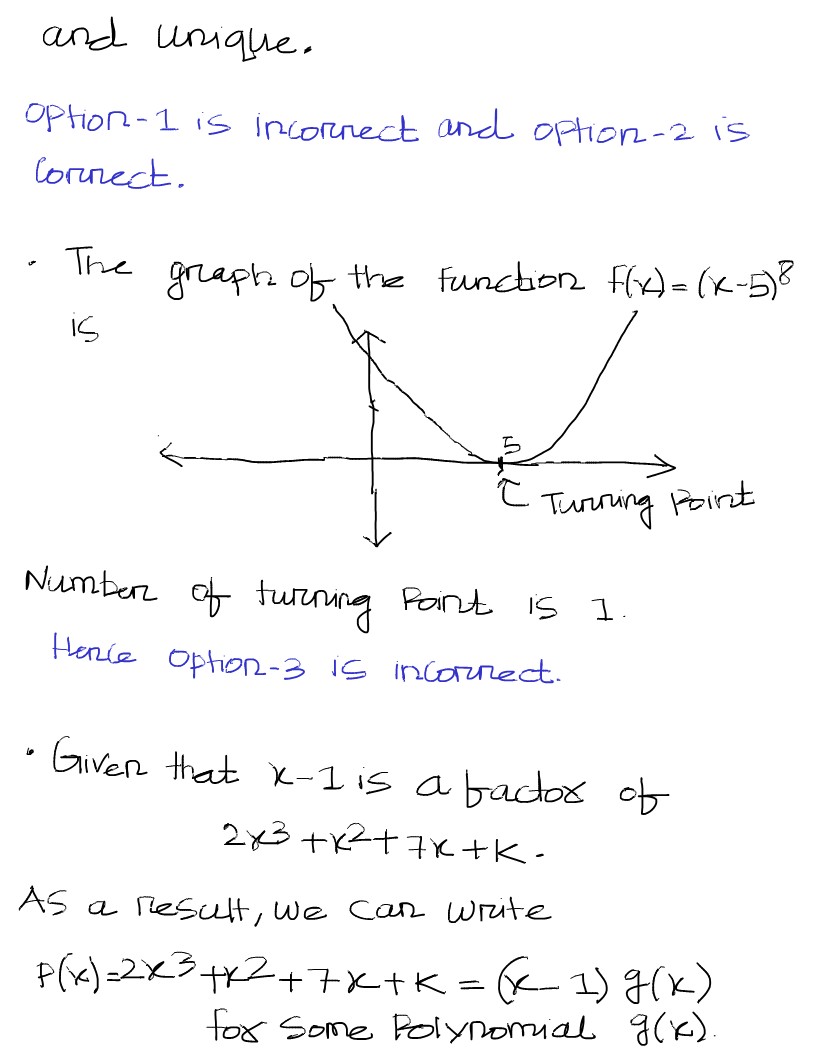 and unique.
Option-1 is incorrect and option-2 is
Correct.
• The graph of the function f(x) = (x-5)⁸
is
5
Turning Point
Number of turning Point is 1.
Hence Option-3 is incorrect.
• Given that x-1 is a factor of
2x³+x²+7x+k.
As a result, we can write
P(x)=2x³+x²+7x+k = (x-1) g(x)
for some Polynomial g(x).